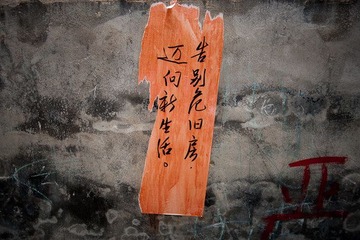 告别危旧房.
迈向新生活。